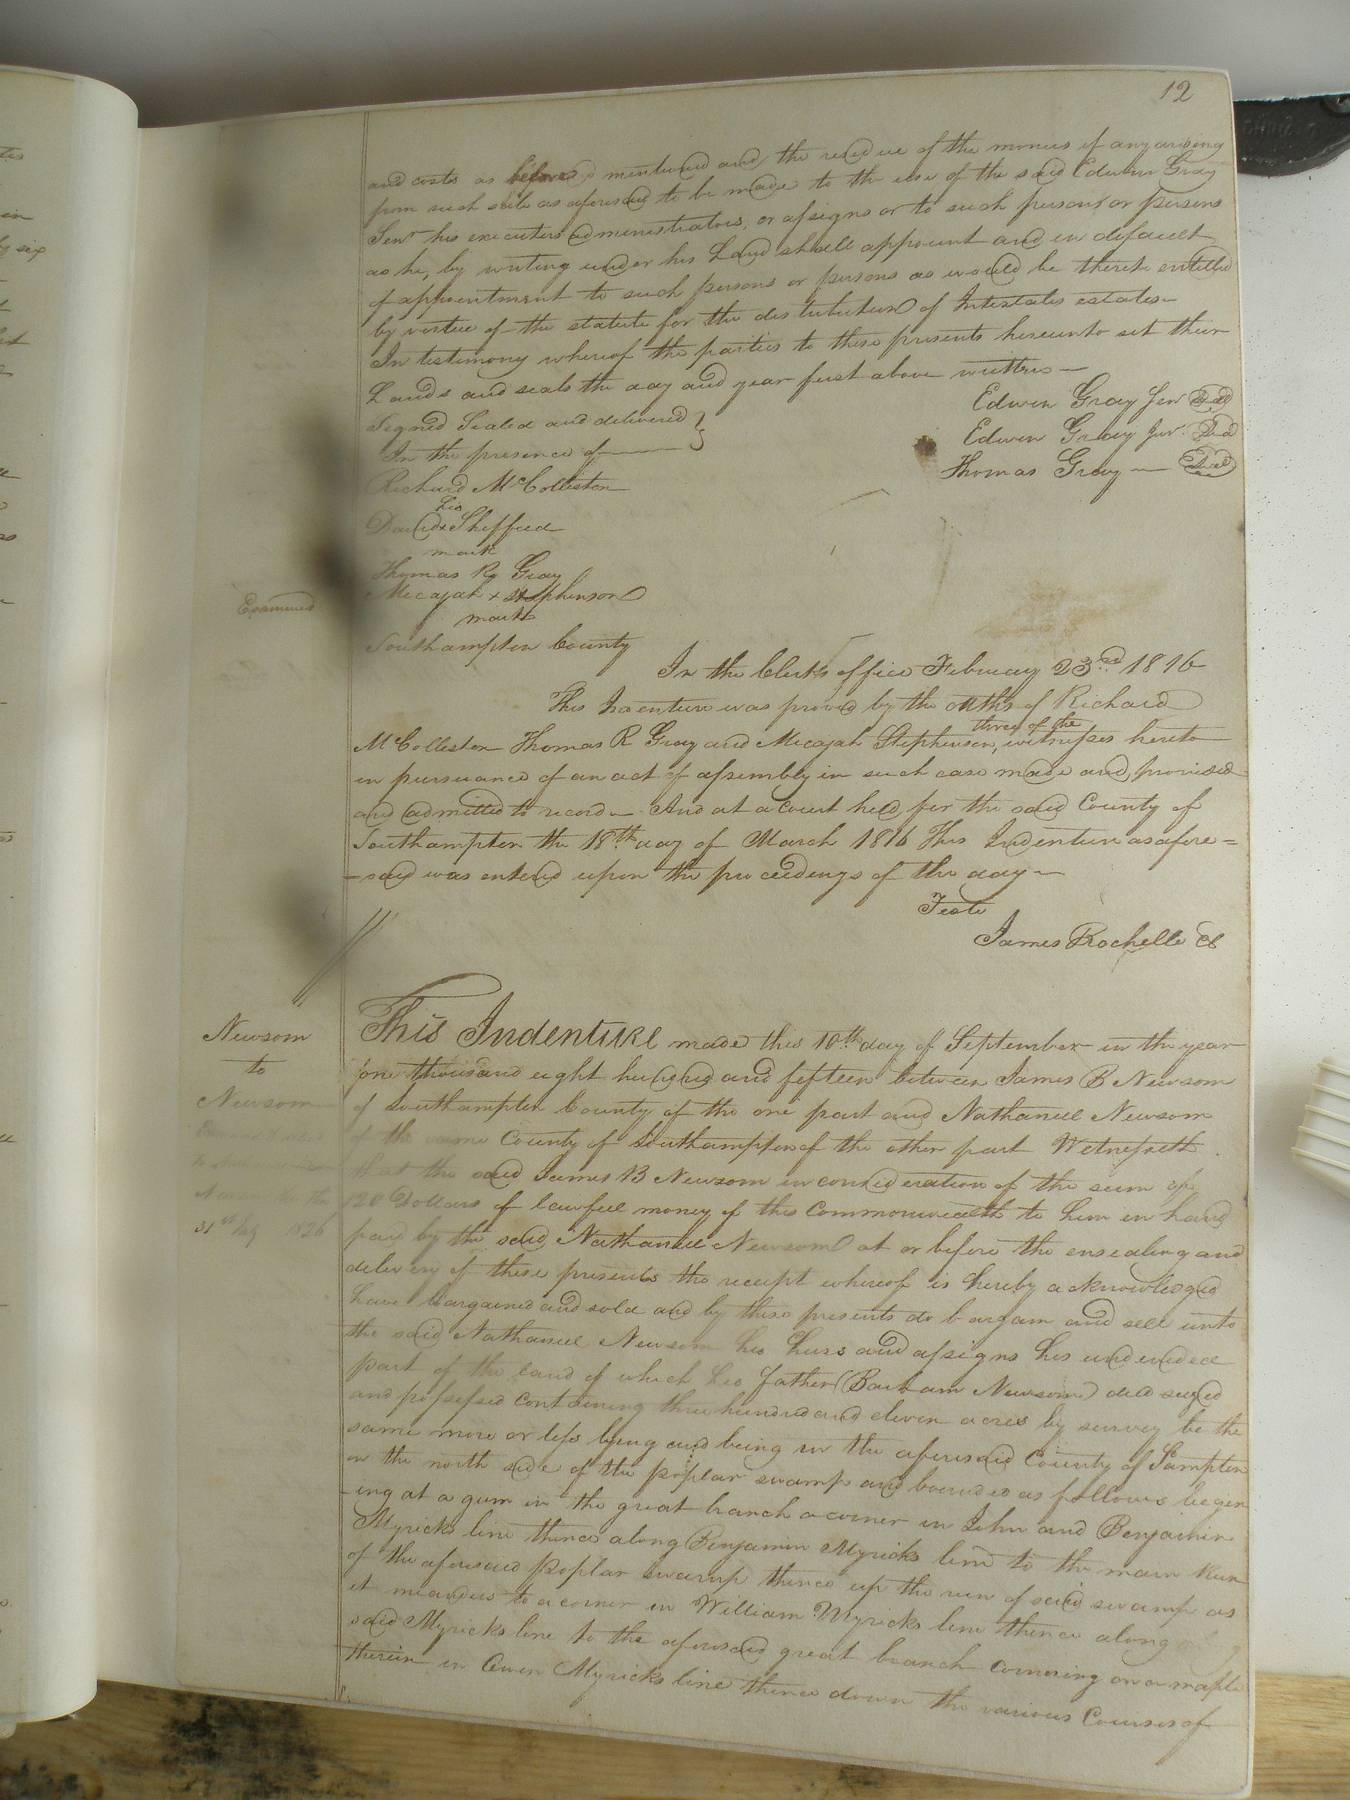 12
and costs as before mentioned and the residue of the monies if any arising
from such sale as aforesaid to be made to the use of the said Edwin Gray
Senr his executors administrators, or assigns or to such persons or persons
as he, by writing under his hand shall appoint and in default
of appointment to such persons or persons as would be thereto entitled
by vertue of the statute for the distribution of Intestates estates—
In testimony whereof the parties to these presents hereunto set their
hands and seals the day and year first above written—
Edwin Gray Senr Seal
Signed Sealed and delivered }
Edwin Gray Junr. Seal
In the presence of
Thomas Gray — Seal
Richard McColleston
his
David x Sheffeed
mark
Thomas R Gray
Micajah x Stephenson
mark
Examined
Southampton County
In the Clerks office February 23rd 1816
This Indenture was proved by the oaths of Richard
three of the
McColleston Thomas R Gray and Micajah Stephenson, witnesses hereto
in pursuance of an act of assembly in such case made and provided
and admitted to record— And at a Court held for the said County of
Southampton the 18th day of March 1816 This Indenture as afore=
-said was entered upon the proceedings of the day—
Teste
James Rochelle Cl
Newsom
to
Newsom
31st 1826
This Indenture made this 10th day of September in the year
one thousand eight hundred and fifteen between James B Newsom
of Southampton County of the one part and Nathaniel Newsom
of the same County of Southampton of the other part Witnesseth
that the said James B Newsom in consideration of the sum of
120 Dollars of lawfull money of this Commonwealth to him in hand
paid by the said Nathaniel Newsom at or before the ensealing and
delivery of these presents the receipt whereof is hereby acknowledged
have bargained and sold and by these presents do bargain and sell unto
the said Nathaniel Newsom his heirs and assigns his undivided
part of the land of which his father (Barham Newsom) died seized
and possessed containing three hundred and eleven acres by survey be the
same more or less lying and being in the aforesaid County of Sampton
on the north side of the poplar swamp and bounded as follows begin
-ing at a gum in the great branch a corner in John and Benjamin
Myricks line thence along Benjamin Myricks line to the main Run
of the aforesaid Poplar swamp thence up the run of said swamp as
it meanders to a corner in William Myricks line thence along
said Myricks line to the aforesaid great branch cornering on a maple
therein in Owen Myricks line thence down the various Courses of